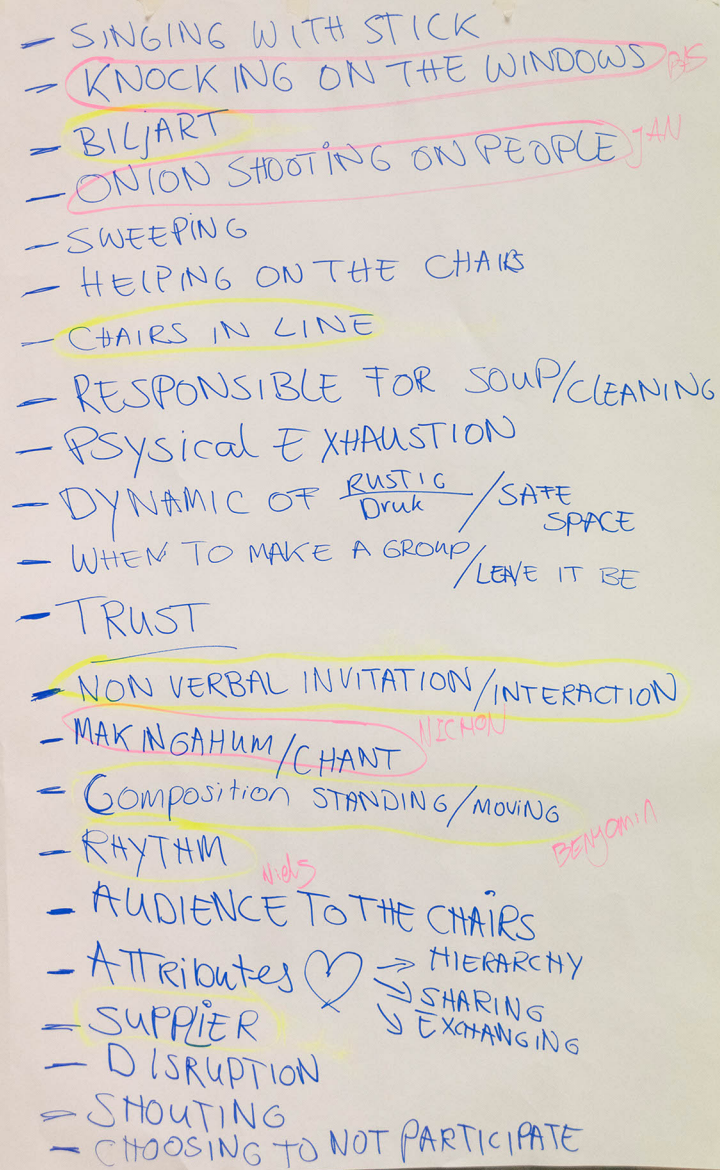 - SINGING WITH STICK
- KNOCKING ON THE WINDOWS
- BILJART
- ONION SHOOTING ON PEOPLE JAN
- SWEEPING
- HELPING ON THE CHAIRS
- CHAIRS IN LINE
- RESPONSIBLE FOR SOUP/CLEANING
- PSYSICAL EXHAUSTION
- DYNAMIC OF RUSTIG/Druk / SAFE SPACE
- WHEN TO MAKE A GROUP/LEAVE IT BE
- TRUST
- NON VERBAL INVITATION/INTERACTION
- MAKING A HUM/CHANT NICHON
- Composition STANDING/MOVING
BENJAMIN
- RHYTHM
Niels
- AUDIENCE TO THE CHAIRS
- ATTRibutes ♡ → HIERARCHY
↘ SHARING
↘ EXCHANGING
- SUPPLIER
- DISRUPTION
- SHOUTING
- CHOOSING TO NOT PARTICIPATE